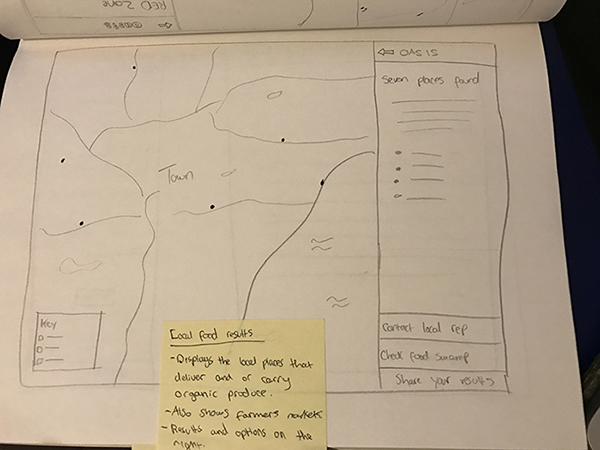 RED Zone
⇦ oasis
⇦ OASIS
Seven places found
Town
Key
Contact local rep
Check food swamp
Share your results
Local food results
- Displays the local places that
deliver and or carry
organic produce.
- Also shows farmers markets
- Results and options on the
right.